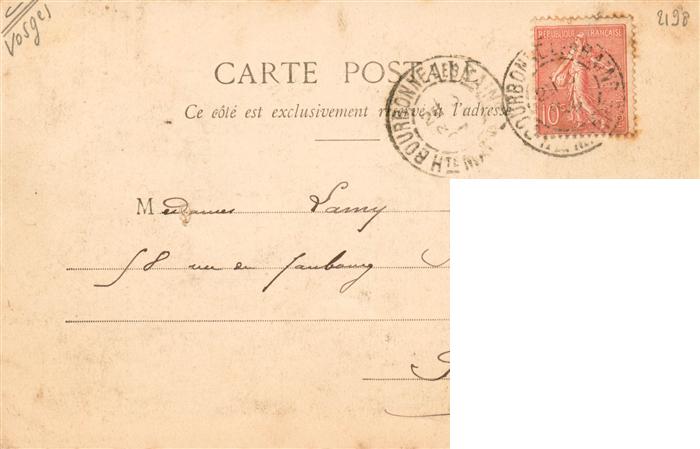 Vosges
2198
CARTE POSTALE
Ce côté est exclusivement réservé à l'adresse
REPUBLIQUE FRANÇAISE
10
BOURBONNE-LES-BAINS
HTE MARNE
BOURBONNE-LES-BAINS
Mesdames Lamy
58 rue du Faubourg